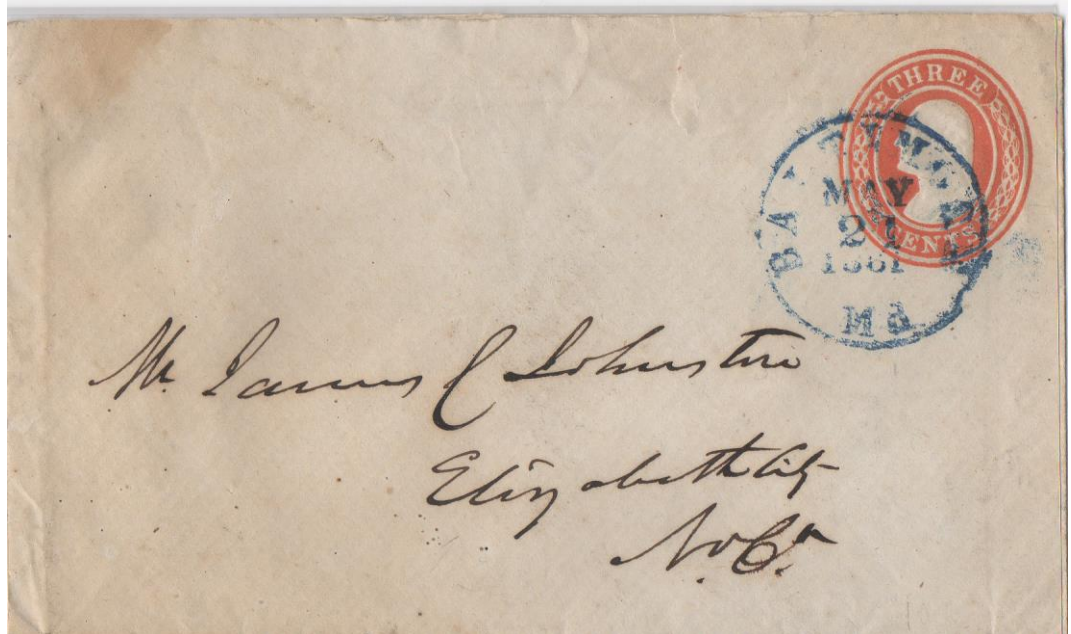 THREE
CENTS
BALTIMORE
MAY
21
1861
Md
Mr James C Johnston
Elizabeth City
N. Ca